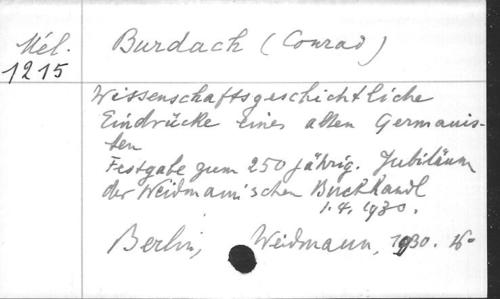 Mél. Burdach (Conrad)
1215
Wissenschaftsgeschichtliche
Eindrücke eines alten Germanis-
ten
Festgabe zum 250 jährig. Jubiläum
der Weidmann'schen Buchhandl
1.4.1930.
Berlin, Weidmann, 1930.